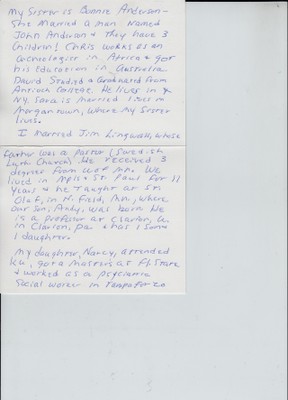 My Sister is Bonnie Anderson-
She Married a man Named
John Anderson & they have 3
Children! Chris works as an
in Africa & got
his education in Australia.
David Studied & Graduated from
Antioch College. He lives in &
NY. Sara is married lives in
Morgantown, Where My Sister
lives.
I married Jim Lingwall, whose
Father was a pastor (Swedish
Luth Church). He received 3
degrees from U of Mn. We
lived in Mpls & St. Paul for 11
Years & he Taught at St.
Olaf, in N. Field, Mn, where
our Son, Andy, was born. He
is a professor at Clarion, U.
in Clarion, Pa & has 1 Son &
1 daughter.
My daughter, Nancy, attended
KU, got a masters at Fl. State
& worked as a psychiatric
Social worker in Tampa for 20